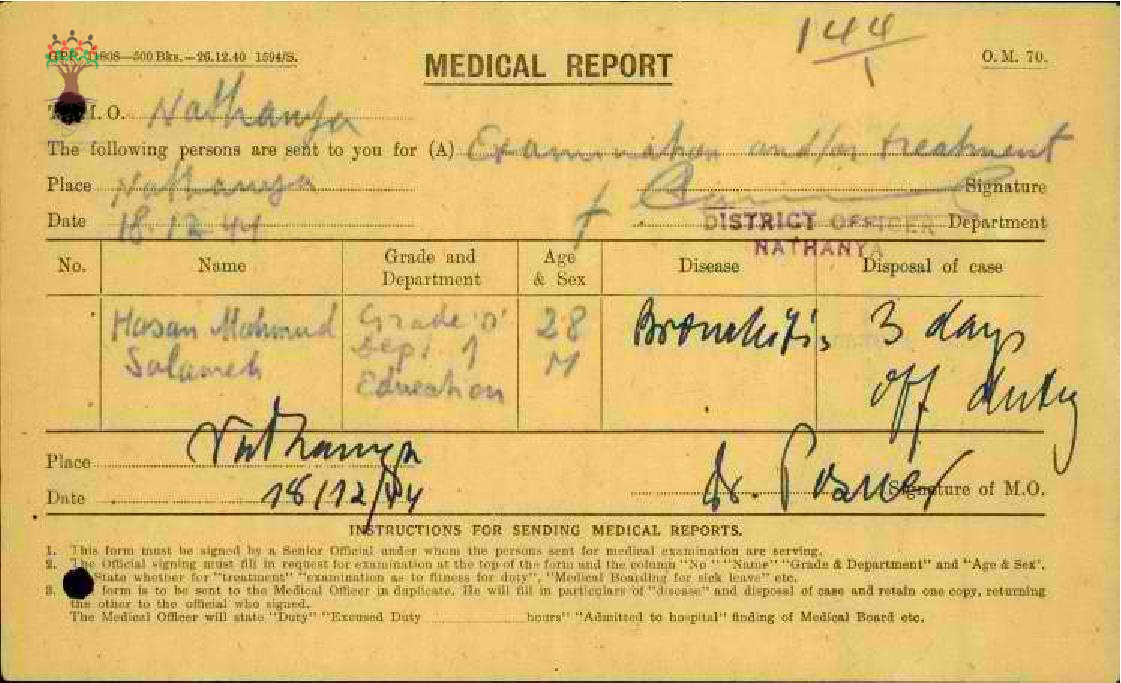 G.P.P. 11808—500 Bks.—26.12.40 1594/S.
144
1
MEDICAL REPORT
O. M. 70.
To M. O. Nathanya
The following persons are sent to you for (A) Examination and/or treatment
Place Nathanya Signature
Date 18.12.44 f DISTRICT OFFICER Department
NATHANYA
No. Name Grade and Department Age & Sex Disease Disposal of case
Hasan Mahmud Grade 'D' 28 Bronchitis 3 days
Salameh Dept. of M off duty
Education
Place Nathanya
Date 18/12/44 Dr. Posner Signature of M.O.
INSTRUCTIONS FOR SENDING MEDICAL REPORTS.
1. This form must be signed by a Senior Official under whom the persons sent for medical examination are serving.
2. The Official signing must fill in request for examination at the top of the form and the column "No" "Name" "Grade & Department" and "Age & Sex".
State whether for "treatment" "examination as to fitness for duty", "Medical Boarding for sick leave" etc.
3. form is to be sent to the Medical Officer in duplicate. He will fill in particulars of "disease" and disposal of case and retain one copy, returning
the other to the official who signed.
The Medical Officer will state "Duty" "Excused Duty hours" "Admitted to hospital" finding of Medical Board etc.